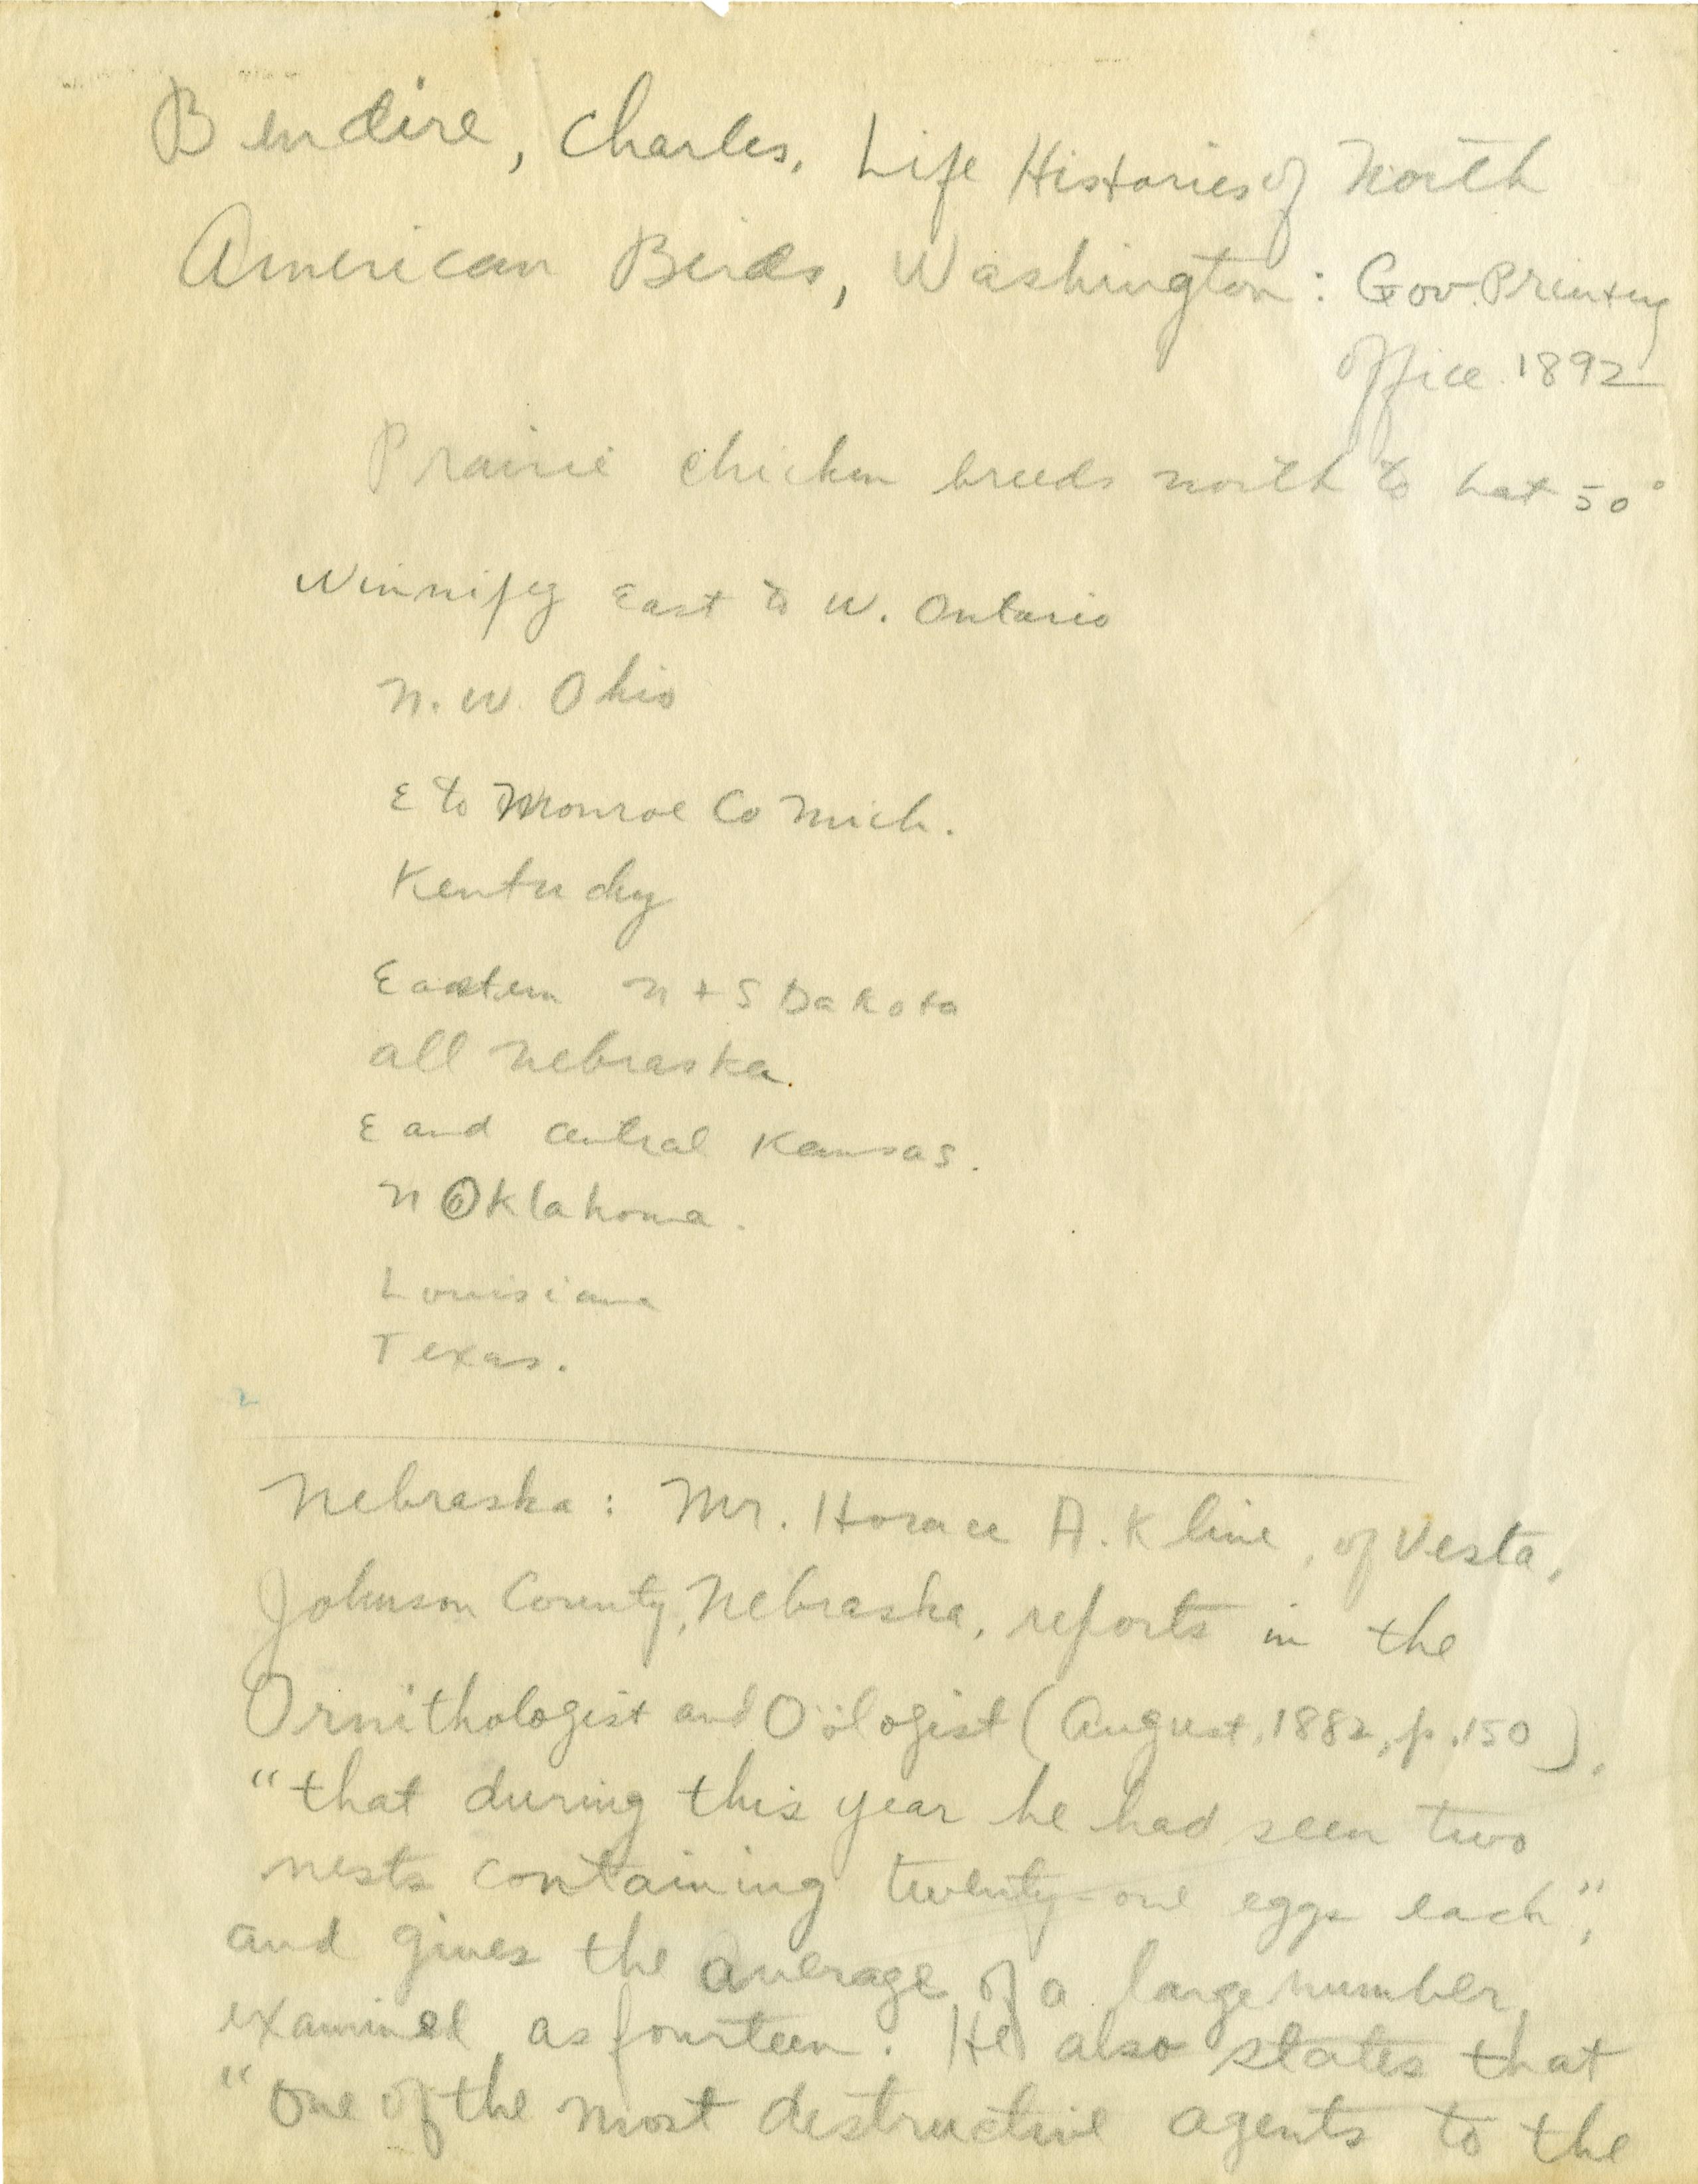 Bendire, Charles, Life Histories of North
American Birds, Washington: Gov. Printing
office 1892
Prairie chicken breeds north to Lat 50°
Winnipeg East to W. Ontario
N. W. Ohio
E to Monroe Co Mich.
Kentucky
Eastern N + S Dakota
all Nebraska.
E and Central Kansas.
N Oklahoma.
Louisiana
Texas.
Nebraska: Mr. Horace A. Kline, of Vesta,
Johnson County, Nebraska, reports in the
Ornithologist and Oölogist (August, 1882, p. 150),
"that during this year he had seen two
nests containing twenty-one eggs each";
and gives the average of a large number
examined as fourteen. He also states that
"One of the most destructive agents to the